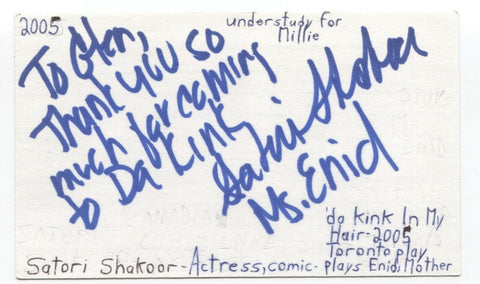 2005
understudy for
Millie
To Glen,
Thank you so
much for coming
to Da Kink
Satori Shakoor
Ms. Enid
'da kink In My
Hair-2005
Toronto play
Satori Shakoor-Actress, comic- plays Enid, Mother